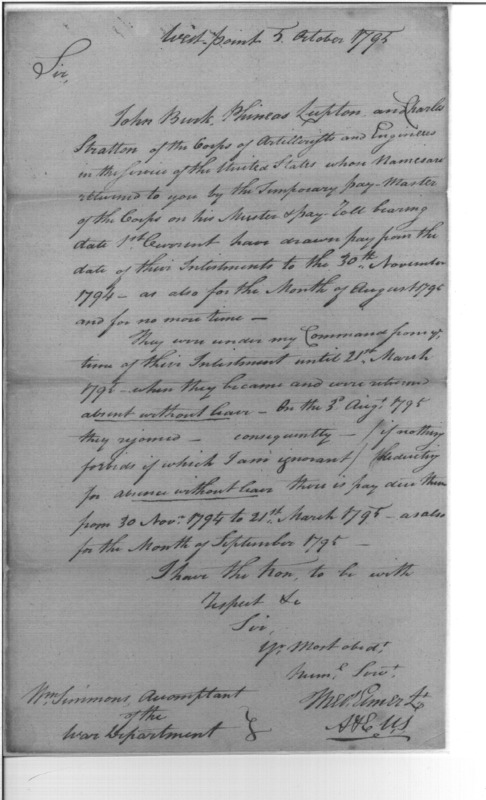 West-point 5. October 1795
Sir,
John Burk, Phineas Lupton and Charles
Stratton of the Corps of Artillerists and Engineers
in the service of the United States whose names are
returned to you by the Temporary pay-Master
of the Corps on his Muster & pay-Roll bearing
date 1st Current have drawn pay from the
date of their Inlistments to the 30th November
1794 - as also for the Month of August 1795
and for no more time -
They were under my Command from ye
time of their Inlistment until 21st March
1795 - when they became and were returned
absent without leave - On the 3d Augt 1795
they rejoined - consequently - / if nothing
forbids of which I am ignorant / deducting
for absence without leave there is pay due them
from 30 Novr 1794 to 21st March 1795 - as also
for the Month of September 1795 -
I have the Hon, to be with
respect &c
Sir,
Yr Most obedt
Huml Servt
Elmer Lt
A & E U S
Wm Simmons, Accomptant
of the
War Department }